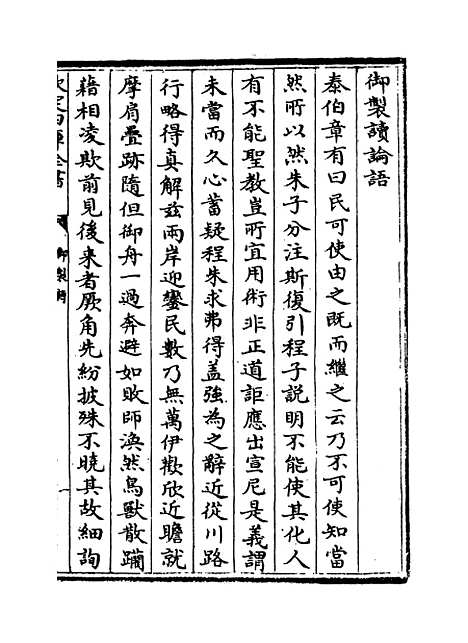 御製讀論語
泰伯章有曰民可使由之既而繼之云乃不可使知當
然所以然朱子分注斯復引程子説明不能使其化人
有不能聖教豈所宜用術非正道詎應出宣尼是義謂
未當而久心蓄疑程朱求弗得盖強為之辭近從川路
行略得真解兹兩岸迎鑾民數乃無萬伊歡欣近瞻就
摩肩疊跡隨但御舟一過奔避如敗師渙然鳥獸散蹦
藉相凌欺前見後来者厥角先紛披殊不曉其故細詢
欽定四庫全書
御製詩
一